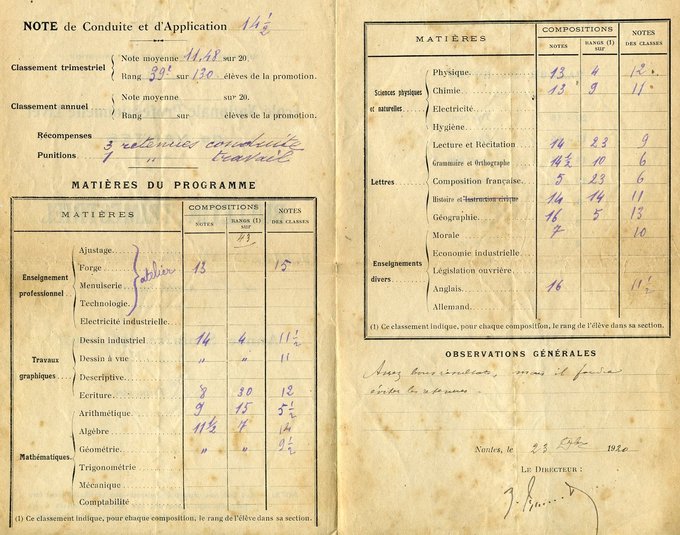 NOTE de Conduite et d'Application 14 1/2
Classement trimestriel
Note moyenne 11,48 sur 20.
Rang 39e sur 130 élèves de la promotion.
Classement annuel
Note moyenne sur 20.
Rang sur élèves de la promotion.
Récompenses
Punitions
3 retenues conduite
1 " travail
MATIÈRES DU PROGRAMME
MATIÈRES
COMPOSITIONS
NOTES
RANGS (1) sur
NOTES DES CLASSES
43
Enseignement professionnel
Ajustage
Forge 13 15
Menuiserie
Technologie
atelier
Electricité industrielle
Travaux graphiques
Dessin industriel 14 4 11 1/2
Dessin à vue " " 11
Descriptive
Ecriture 8 30 12
Mathématiques
Arithmétique 9 15 5 1/2
Algèbre 11 1/2 7 12
Géométrie " " 9 1/2
Trigonométrie
Mécanique
Comptabilité
(1) Ce classement indique, pour chaque composition, le rang de l'élève dans sa section.
MATIÈRES
COMPOSITIONS
NOTES
RANGS (1) sur
NOTES DES CLASSES
Sciences physiques et naturelles
Physique 13 4 12
Chimie 13 9 11
Electricité
Hygiène
Lettres
Lecture et Récitation 14 23 9
Grammaire et Orthographe 14 1/2 10 6
Composition française 5 23 6
Histoire et Instruction civique 14 14 11
Géographie 16 5 13
Morale 7 10
Enseignements divers
Economie industrielle
Législation ouvrière
Anglais 16 11 1/2
Allemand
(1) Ce classement indique, pour chaque composition, le rang de l'élève dans sa section.
OBSERVATIONS GÉNÉRALES
Assez bons résultats, mais il faudra
éviter les retenues.
Nantes, le 23 1920
LE DIRECTEUR :